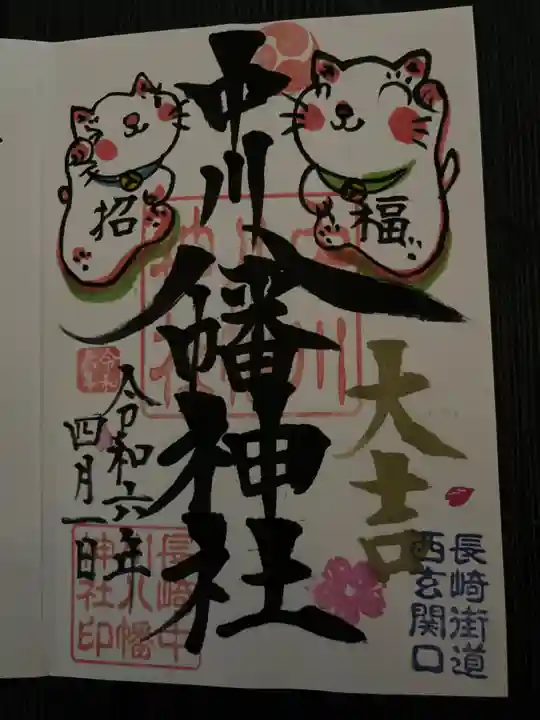 中川八幡神社
福
招
大吉
長崎街道
西玄関口
令和六年
四月一日
中川八幡神社
長崎中
川八幡
神社印